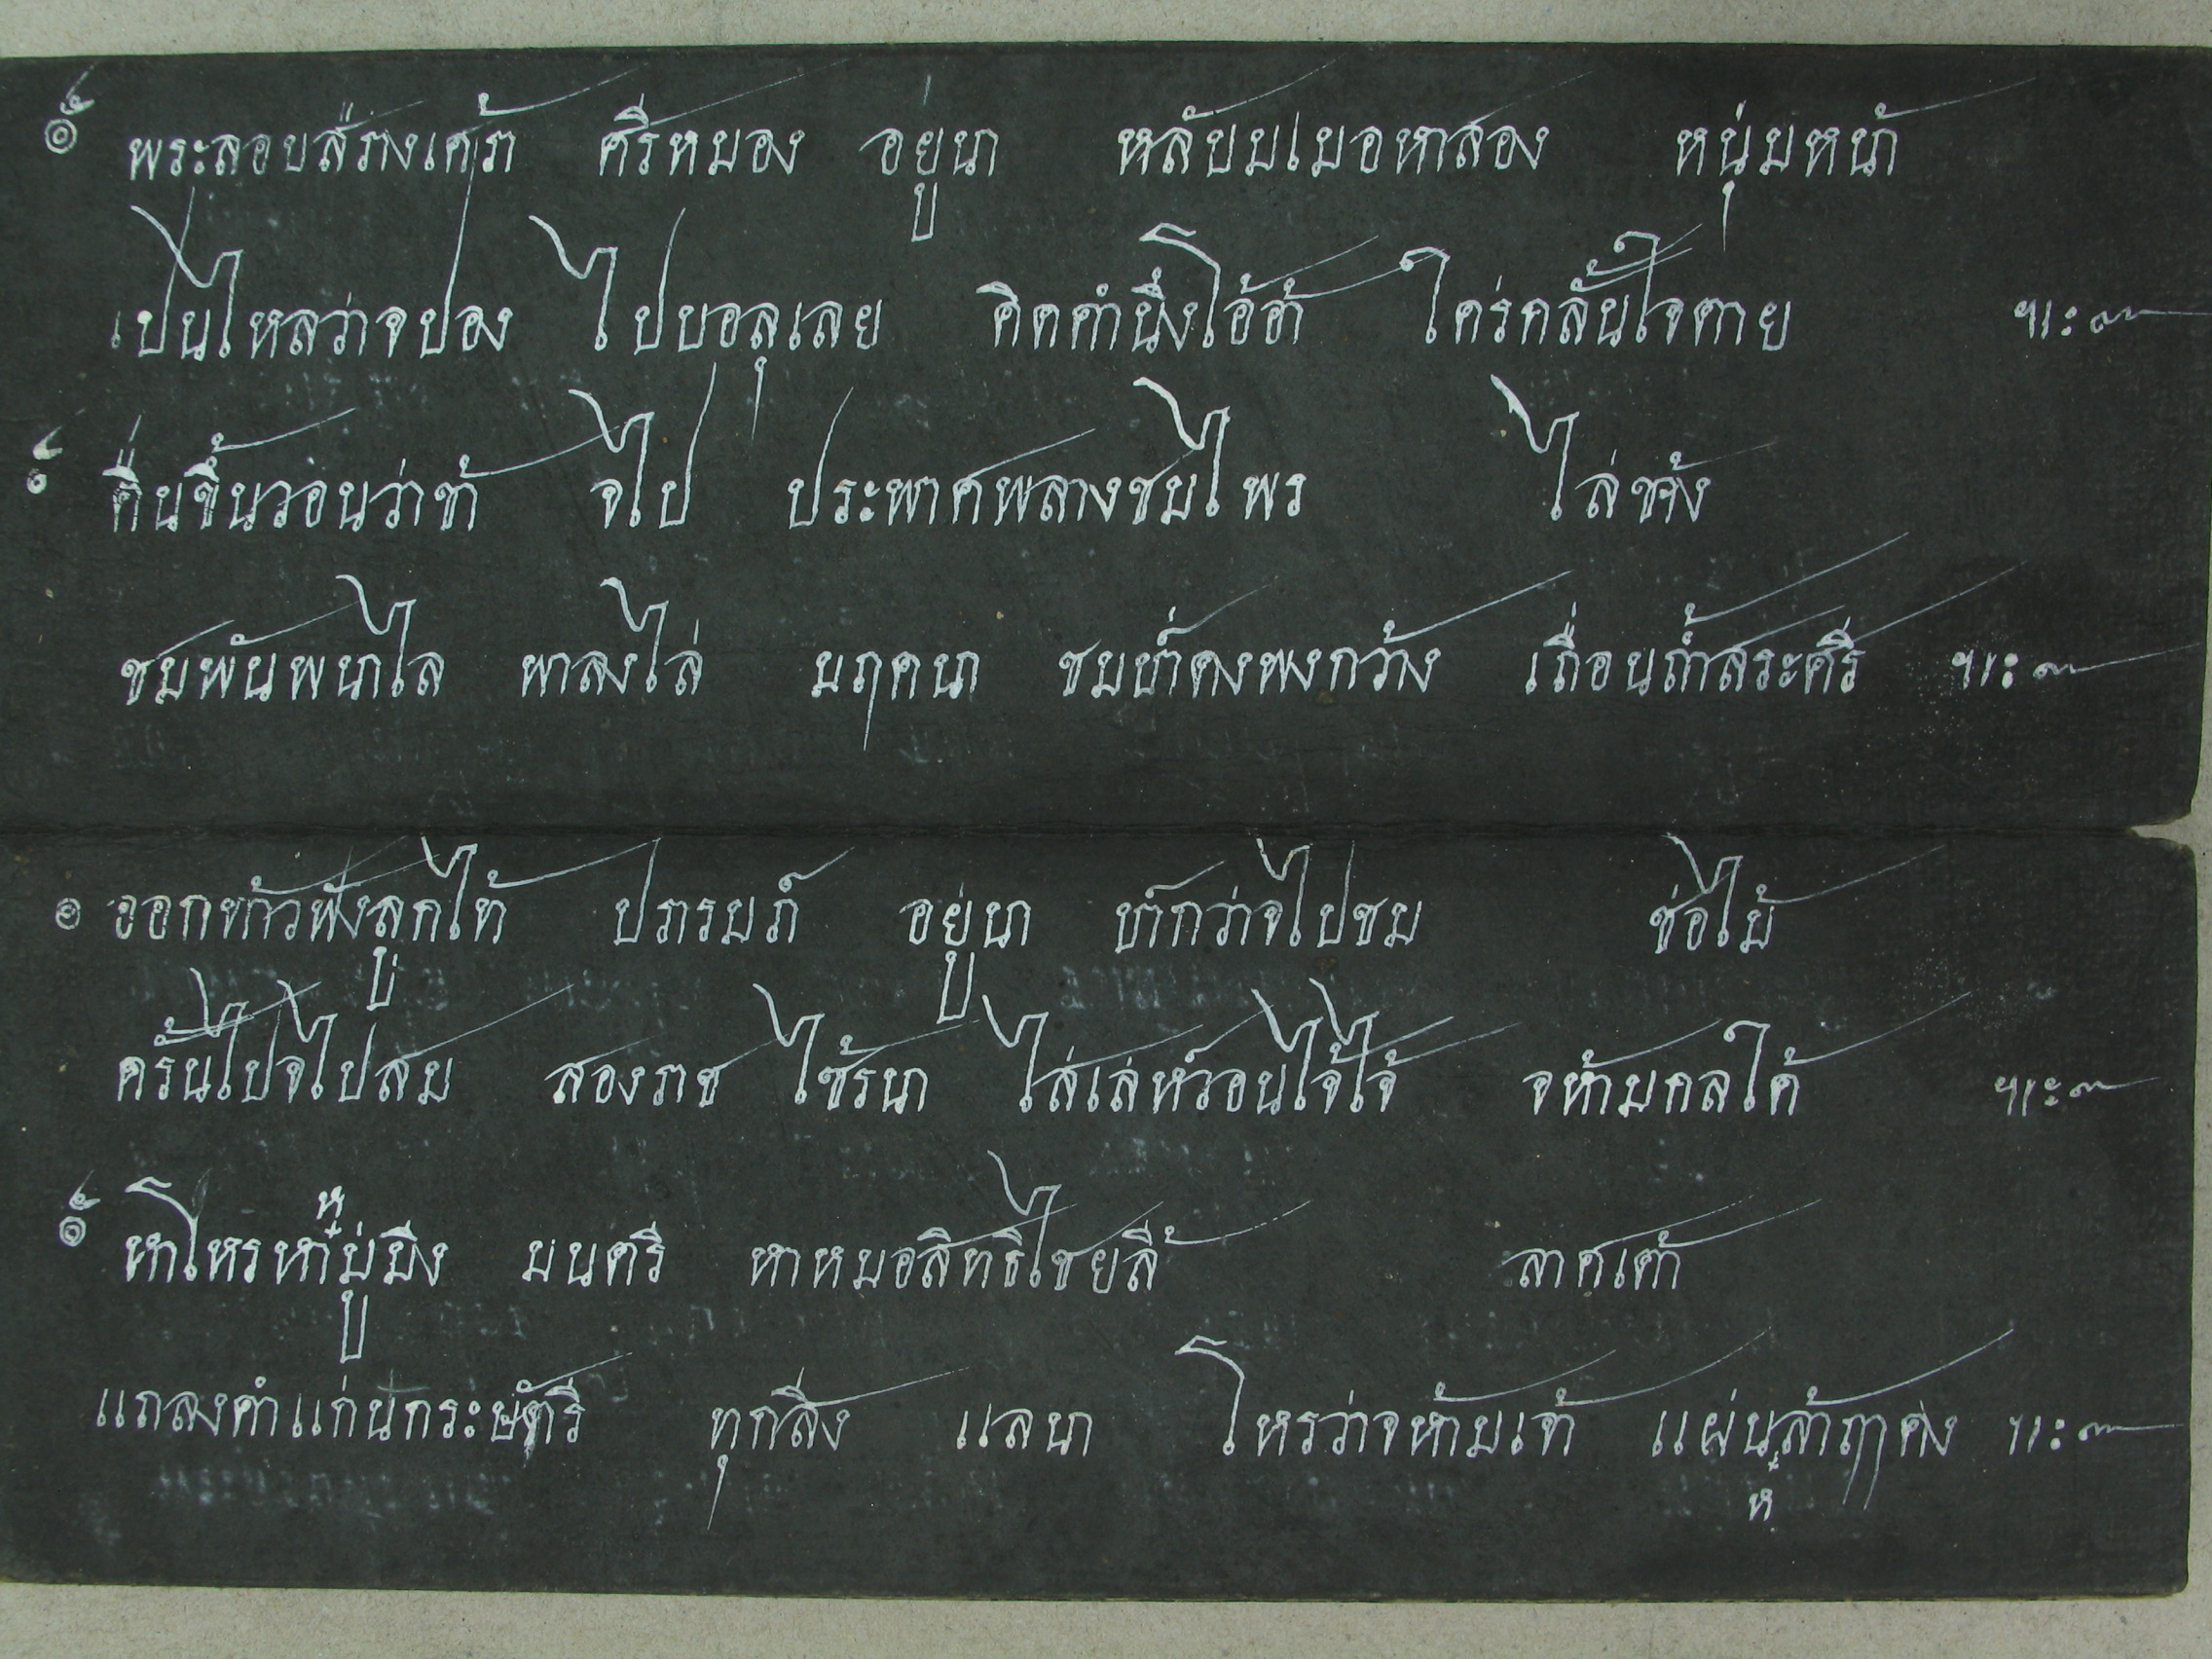 ๏ พระลอบส่รางเคร้า ศรีหมอง อยู่นา หลับบเมอหาสอง หนุ่มหน้า
เปนไหลว่าจปอง ไปบอลุเลย คิดคำนึงโอ้อ้า ใคร่กลั้นใจตาย ฯะ๛
คืนขึ้นวอนว่าข้า จไป ประพาศพลางชมไพร ไล่ช้าง
ชมพันพนาไล พาลงไล่ มฤคนา ชมถ้ำดงพงกว้าง เถื่อนถ้ำสระศรี ฯะ๛
๏ ออกท้าวฟังลูกไท้ ปรารมภ์ อยู่นา ทำกว่าจไปชม ช่อไม้
ครั้นไปจไปสม สองราช ไซ้รนา ไส่เล่ห์วอนไจ้ไจ้ จห้ามกลใด้ ฯะ๛
๏ หาโหรหาหมู่มิ่ง มนตรี หาหมอสิทธิไชยลี้ ลาศเต้า
แถลงคำแก่นักระษัตรี ทุกสิ่ง แลนา โหรว่าจห้ามเจ้า แผ่นหล้าฤๅคง ฯะ๛